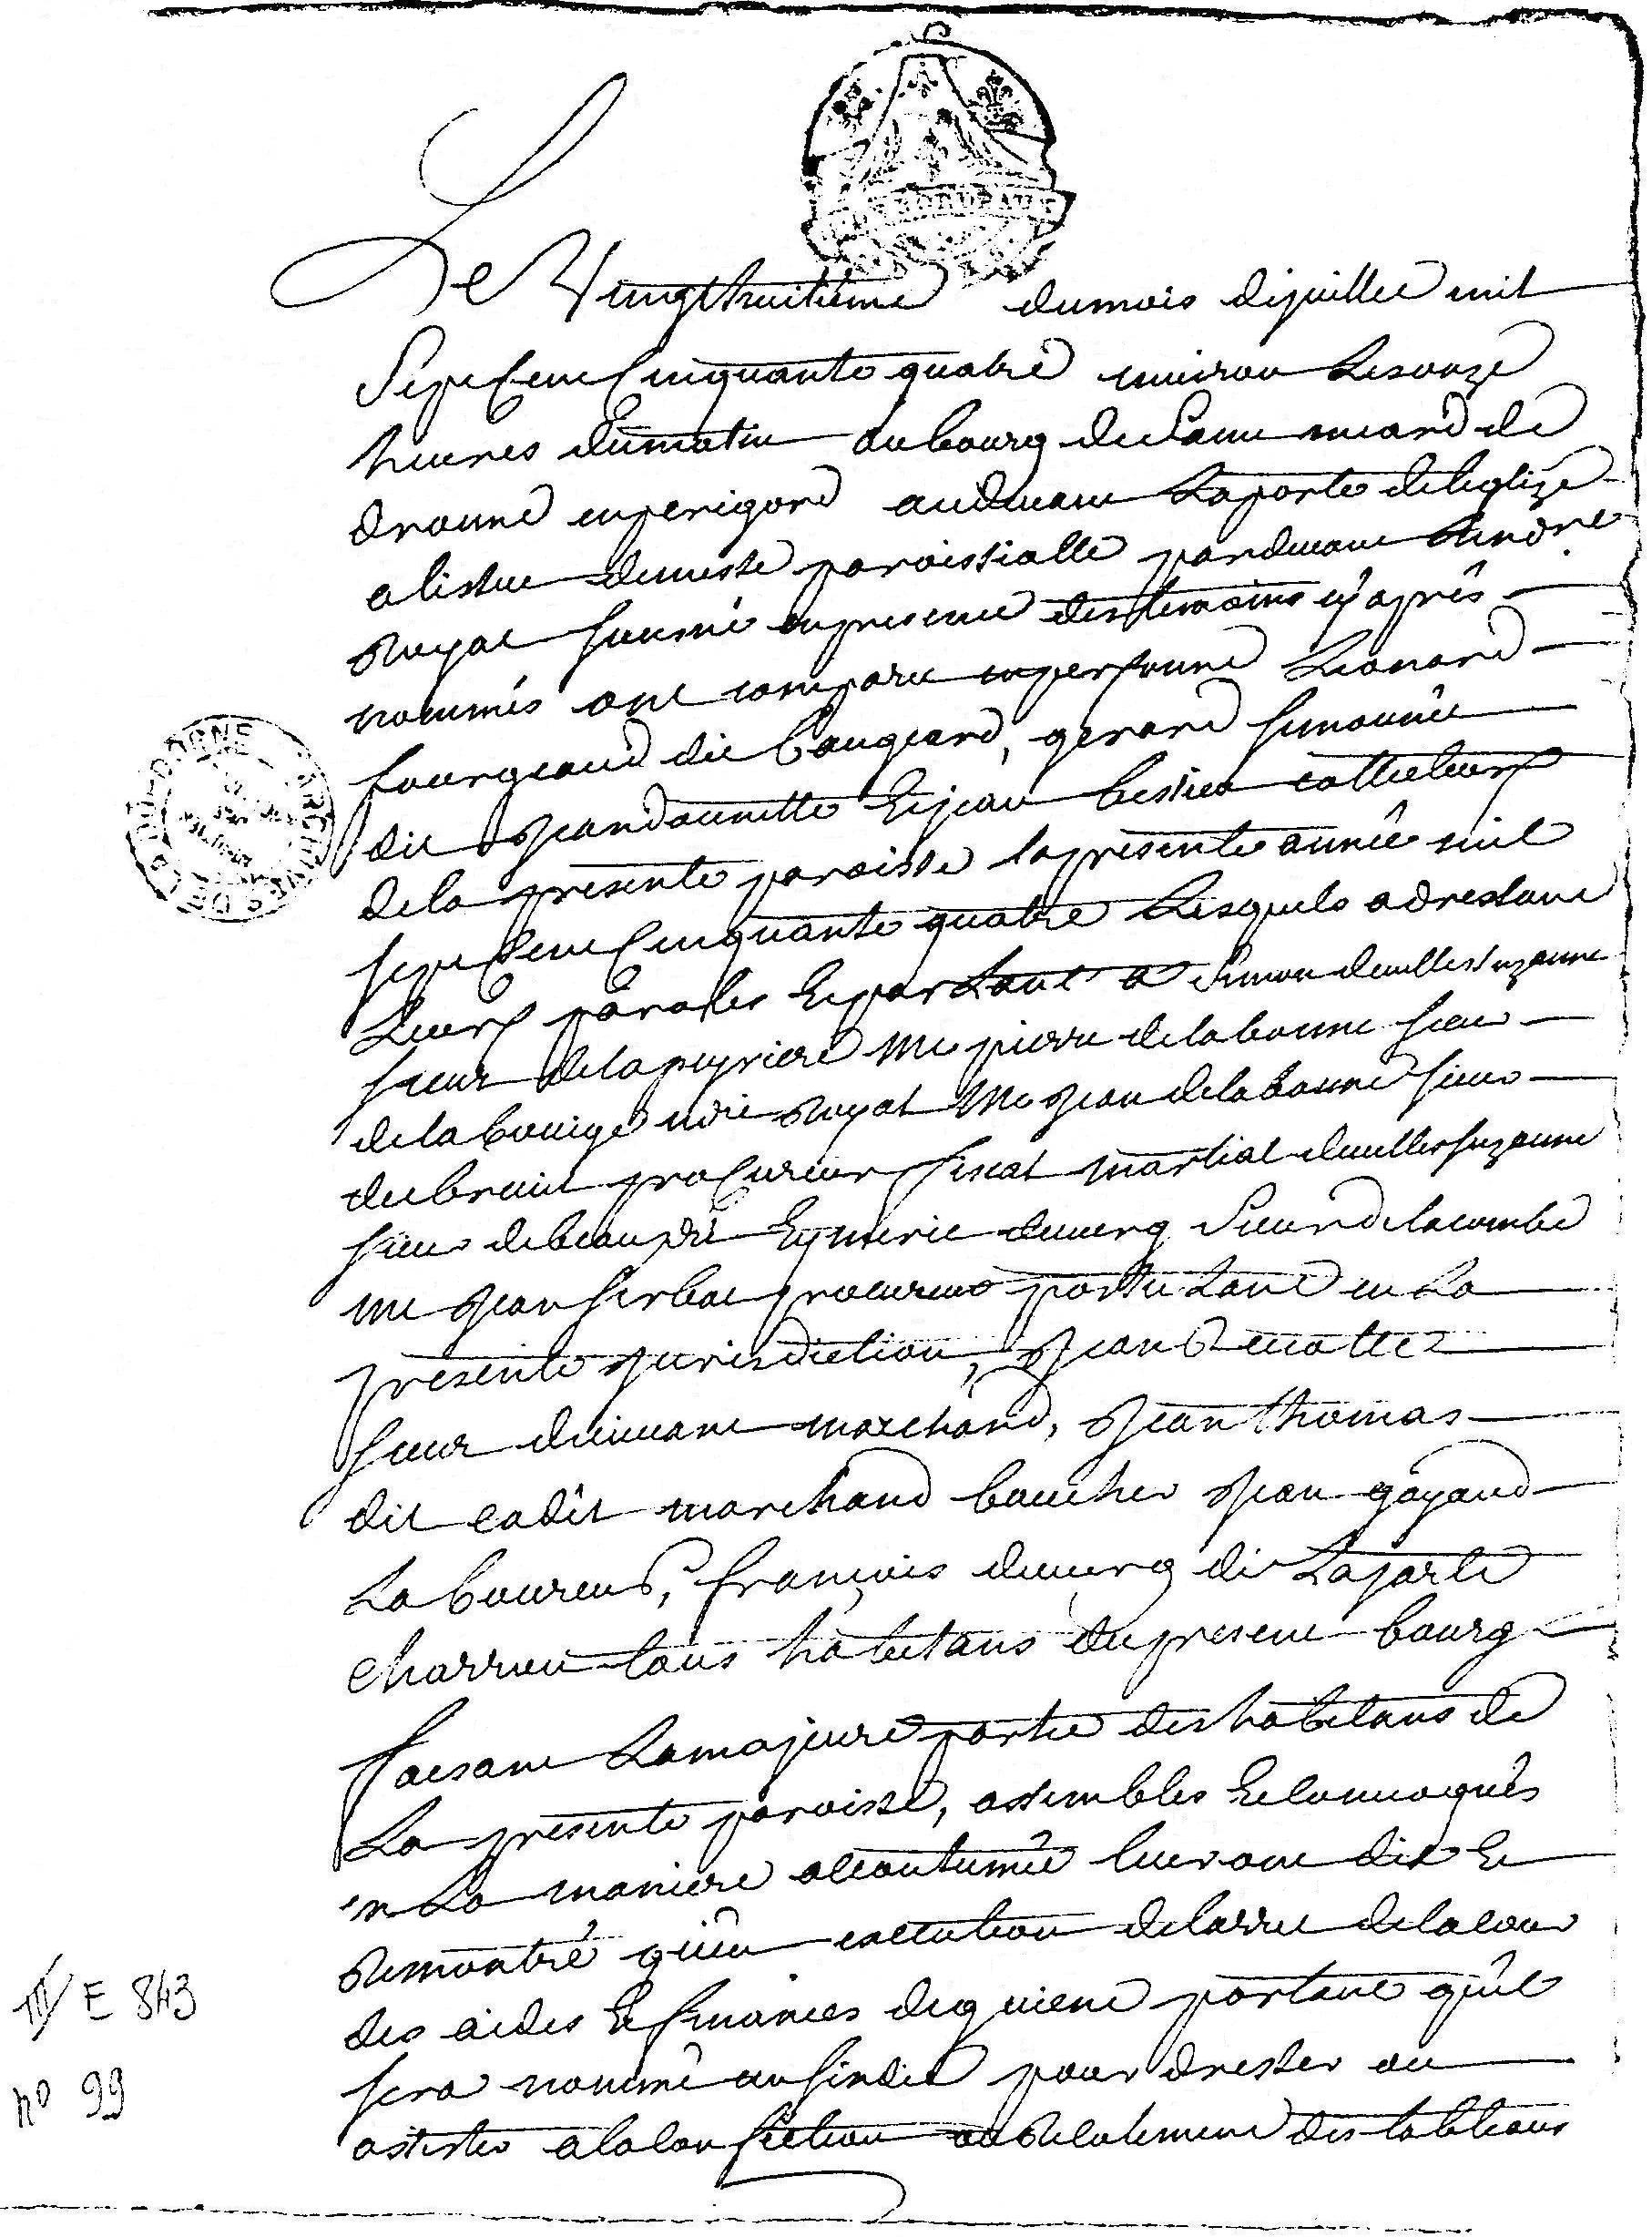 BORDEAUX
Le Vingthuitieme dumois dejuillet mil
Sept Cent Cinquante quatre environ Lesonze
heures dumatin au bourg de Saint meard de
dronne enperigord audevant Laporte deleglize
alissue demesse paroissialle pardevant Lenore
Royal soussiné enpresence destemoins cy après
nommés ont comparu enpersonne Leonard
fourgeaud dit Cougeard, gerard simonnée
dit Jeandounette Et jean bessieu collecteurs
dela presente paroisse lapresente année mil
sept Cent Cinquante quatre Lesquels adressant
Leurs paroles Et parlant a Simon
sieur delapeyriere Me pierre delabonne sieur
delabouige nore Royal Me Jean delabonne sieur
dubreuil proCureur fiscal martial
sieur debeaupré Eymeric dumerg Sieur delacombe
me Jean procureur postulant en La
presente Jurisdiction, Jean
sieur marchand, Jean thomas
dit cadet marchand boucher Jean gayaud
Laboureur, françois dumerg dit Lajarte
charron tous habitans dupresent bourg
faisant Lamajeure partie deshabitans de
La presente paroisse, assembles Et convoqués
en La maniere accoutumée leur ont dit Et
Remontré qu'en execution delarret delacour
des aides Et finances deguiene portant qu'il
sera nommé un sindic pour dresser ou
assister alaconfection ou Recolement des tableaux
ARCHIVES DE LA DORDOGNE
III E 843
no 99